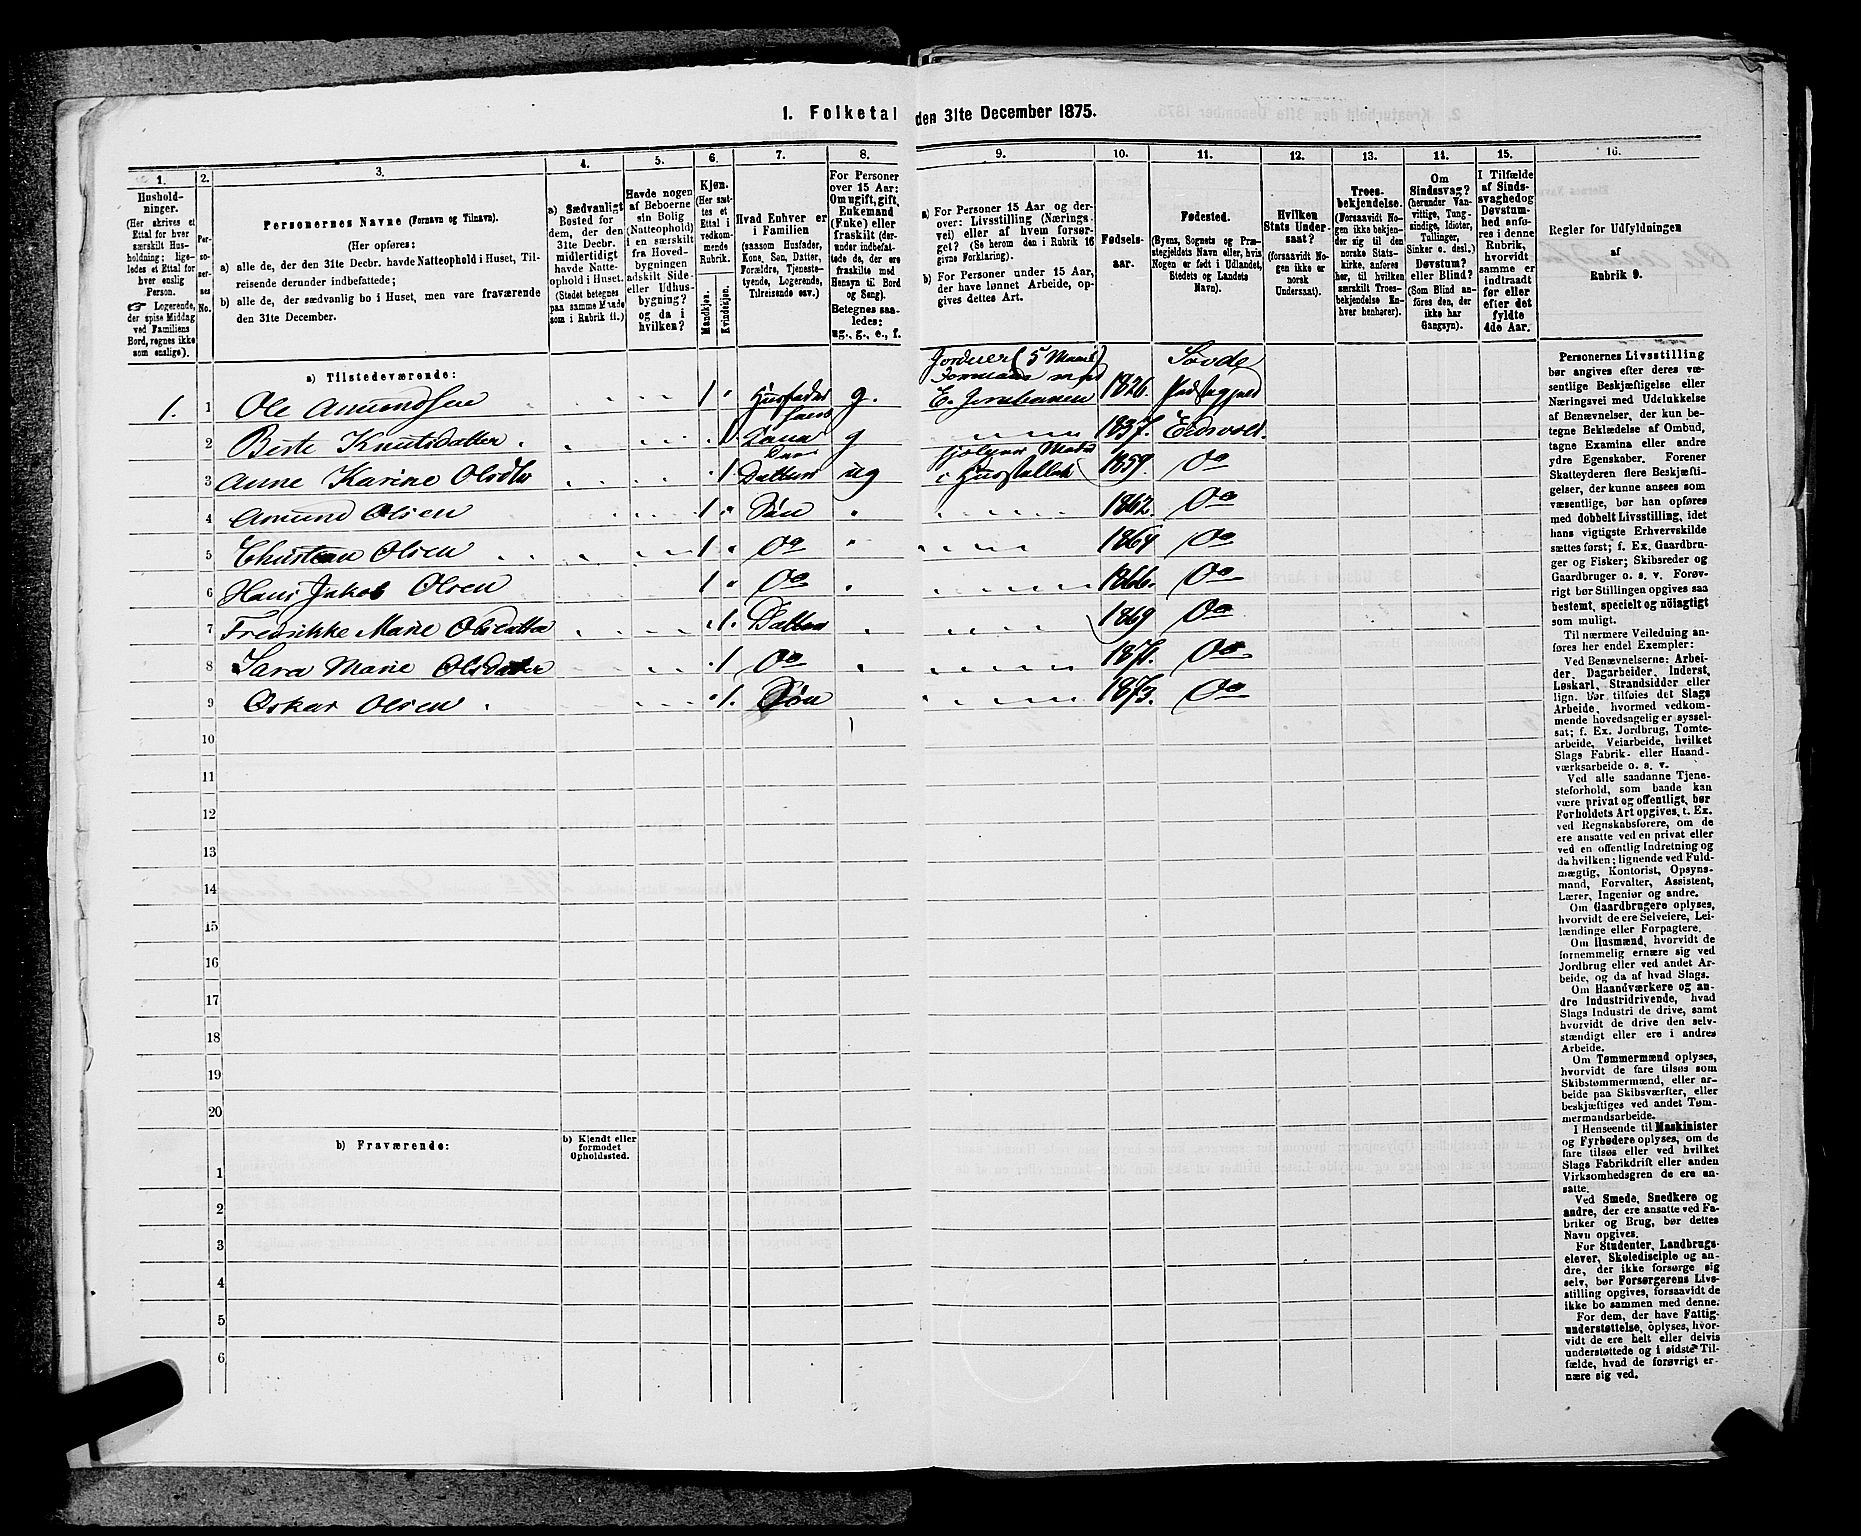 1. Folketal den 31te December 1875.
1. 2. 3. 4. 5. 6. 7. 8. 9. 10. 11. 12. 13. 14. 15. 16.
Hushold-
ninger.
(Her skrives et
Ettal for hver
særskilt Hus-
holdning; lige-
ledes et Ettal for
hver enslig
Person.
☞ Logerende,
der spise Middag
ved Familiens
Bord, regnes ikke
som enslige).
Per-
so-
ner-
nes
No.
Personernes Navne (Fornavn og Tilnavn).
(Her opføres:
a) alle de, der den 31te Decbr. havde Natteophold i Huset, Til-
reisende derunder indbefattede;
b) alle de, der sædvanlig bo i Huset, men vare fraværende
den 31te December.
a) Sædvanligt
Bosted for
dem, der den
31te Decbr.
midlertidigt
havde Natte-
ophold i Huset.
(Stedet betegnes
paa samme Maade
som i Rubrik 11.)
Havde nogen
af Beboerne
sin Bolig
(Natteophold)
i en særskilt
fra Hoved-
bygningen
adskilt Side-
eller Udhus-
bygning?
og da i
hvilken?
Kjøn.
(Her sæt-
tes et
Ettal i
vedkom-
mende
Rubrik.
Mandkjøn.
Kvindekjøn.
Hvad Enhver er
i Familien
(saasom Husfader,
Kone, Søn, Datter,
Forældre, Tjeneste-
tyende, Logerende,
Tilreisende osv.)
For Personer
over 15 Aar:
Om ugift, gift,
Enkemand
(Enke) eller
fraskilt (der-
under indbefat-
tede de, der ere
fraskilte med
Hensyn til Bord
og Seng).
Betegnes saa-
ledes:
ug., g., e., f.
a) For Personer 15 Aar og der-
over: Livsstilling (Nærings-
vei) eller af hvem forsør-
get? (Se herom den i Rubrik 16
givne Forklaring).
b) For Personer under 15 Aar,
der have lønnet Arbeide, op-
gives dettes Art.
Fødsels-
aar.
Fødested.
(Byens, Sognets og Præ-
stegjeldets Navn, eller, hvis
Nogen er født i Udlandet,
Stedets og Landets
Navn).
Hvilken
Stats Under-
saat?
(forsaavidt No-
gen ikke er
norsk
Undersaat).
Troes-
bekjendelse.
(Forsaavidt No-
gen ikke bekjen-
der sig til den
norske Stats-
kirke, anføres
her, til hvilken
særskilt Troes-
bekjendelse En-
hver henhører).
Om
Sindssvag?
(herunder Van-
vittige, Tung-
sindige, Idioter,
Tullinger,
Sinker o. desl.)
Døvstum?
eller Blind?
(Som Blind an-
føres den, der
ikke har
Gangsyn).
I Tilfælde
af Sinds-
svaghed og
Døvstum-
hed anfø-
res i denne
Rubrik,
hvorvidt
samme er
indtraadt
før eller
efter det
fyldte
4de Aar.
Regler for Udfyldningen
af
Rubrik 9.
a) Tilstedeværende:
1. 1 Ole Amundsen 1 Husfader g. E. Jernbanen 1826. Søvde Præstegjeld
2 Berte Knutsdatter 1 g 1837. Eidsvold.
3 Anne Karine Olsdtr 1 Datter ug 1859. Do
4 Amund Olsen 1 Søn 1862. Do
5 Christian Olsen 1 Do 1864 Do
6 Hans Jakob Olsen 1 Do 1866. Do
7 Fredrikke Marie Olsdatter 1 Datter 1869 Do
8 Sara Marie Olsdatter 1 Do 1871. Do
9 Oskar Olsen 1. Søn 1873. Do
10
11
12
13
14
15
16
17
18
19
20
b) Fraværende:
b) Kjendt eller
formodet
Opholdssted.
1
2
3
4
5
6
Personernes Livsstilling
bør angives efter deres væ-
sentlige Beskjæftigelse eller
Næringsvei med Udelukkelse
af Benævnelser, der kun be-
tegne Beklædelse af Ombud,
tagne Examina eller andre
ydre Egenskaber. Forener
Skatteyderen flere Beskjæfti-
gelser, der kunne ansees som
væsentlige, bør han opføres
med dobbelt Livsstilling, idet
hans vigtigste Erhvervskilde
sættes først; f. Ex. Gaardbru-
ger og Fisker; Skibsreder og
Gaardbruger o. s. v. Forøv-
rigt bør Stillingen opgives saa
bestemt, specielt og nöiagtigt
som muligt.
Til nærmere Veiledning an-
føres her endel Exempler:
Ved Benævnelserne: Arbei-
der, Dagarbeider, Inderst,
Løskarl, Strandsidder eller
lign. bør tilføies det Slags
Arbeide, hvormed vedkom-
mende hovedsagelig er syssel-
sat; f. Ex. Jordbrug, Tomte-
arbeide, Veiarbeide, hvilket
Slags Fabrik- eller Haand-
værksarbeide o. s. v.
Ved alle saadanne Tjene-
steforhold, som baade kan
være privat og offentligt, bør
Forholdets Art opgives, t. Ex.
ved Regnskabsførere, om de
ere ansatte ved en privat eller
ved en offentlig Indretning og
da hvilken; lignende ved Fuld-
mægtig, Kontorist, Opsyns-
mand, Forvalter, Assistent,
Lærer, Ingeniør og andre.
Om Gaardbrugere oplyses,
hvorvidt de ere Selveiere, Lei-
lændinge eller Forpagtere.
Om Husmænd, hvorvidt de
fornemmelig ernære sig ved
Jordbrug eller ved andet Ar-
beide, og da af hvad Slags.
Om Haandværkere og an-
dre Industridrivende, hvad
Slags Industri de drive, samt
hvorvidt de drive den selv-
stændigt eller ere i andres
Arbeide.
Om Tømmermænd oplyses,
hvorvidt de fare tilsøs som
Skibstømmermænd, eller ar-
beide paa Skibsværfter, eller
beskjæftiges ved andet Tøm-
mermandsarbeide.
I Henseende til Maskinister
og Fyrbødere oplyses, om de
fare tilsøs eller ved hvilket
Slags Fabrikdrift eller anden
Virksomhedsgren de ere an-
satte.
Ved Smede, Snedkere og
andre, der ere ansatte ved Fa-
briker og Brug, bør dettes
Navn opgives.
For Studenter, Landbrugs-
elever, Skoledisciple og an-
dre, der ikke forsørge sig
selv, bør Forsørgerens Livs-
stilling opgives, forsaavidt de
ikke bo sammen med denne.
For dem, der have Fattig-
understøttelse, oplyses, hvor-
vidt de ere helt eller delvis
understøttede og i sidste Til-
fælde, hvad de forøvrigt er-
nære sig ved.